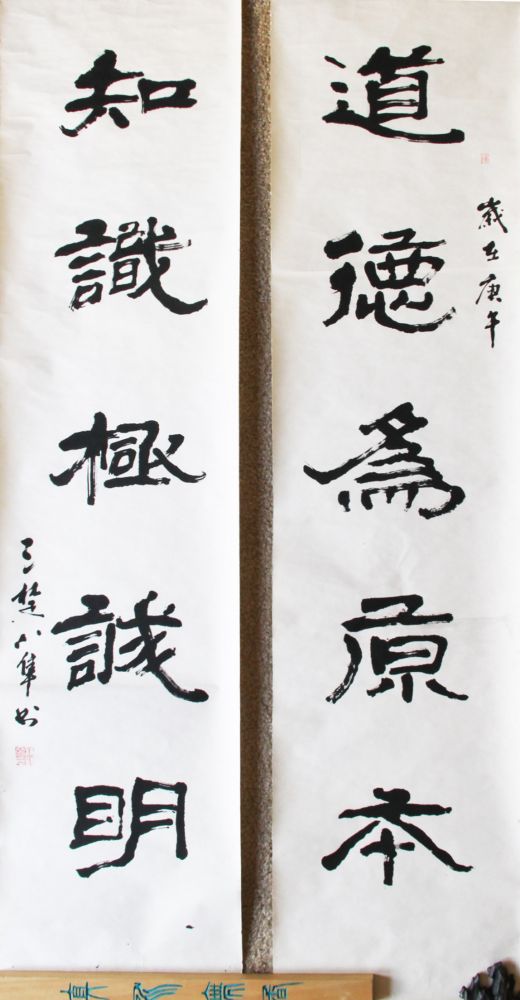 道德為原本
歲在庚午
知識極誠明
三楚